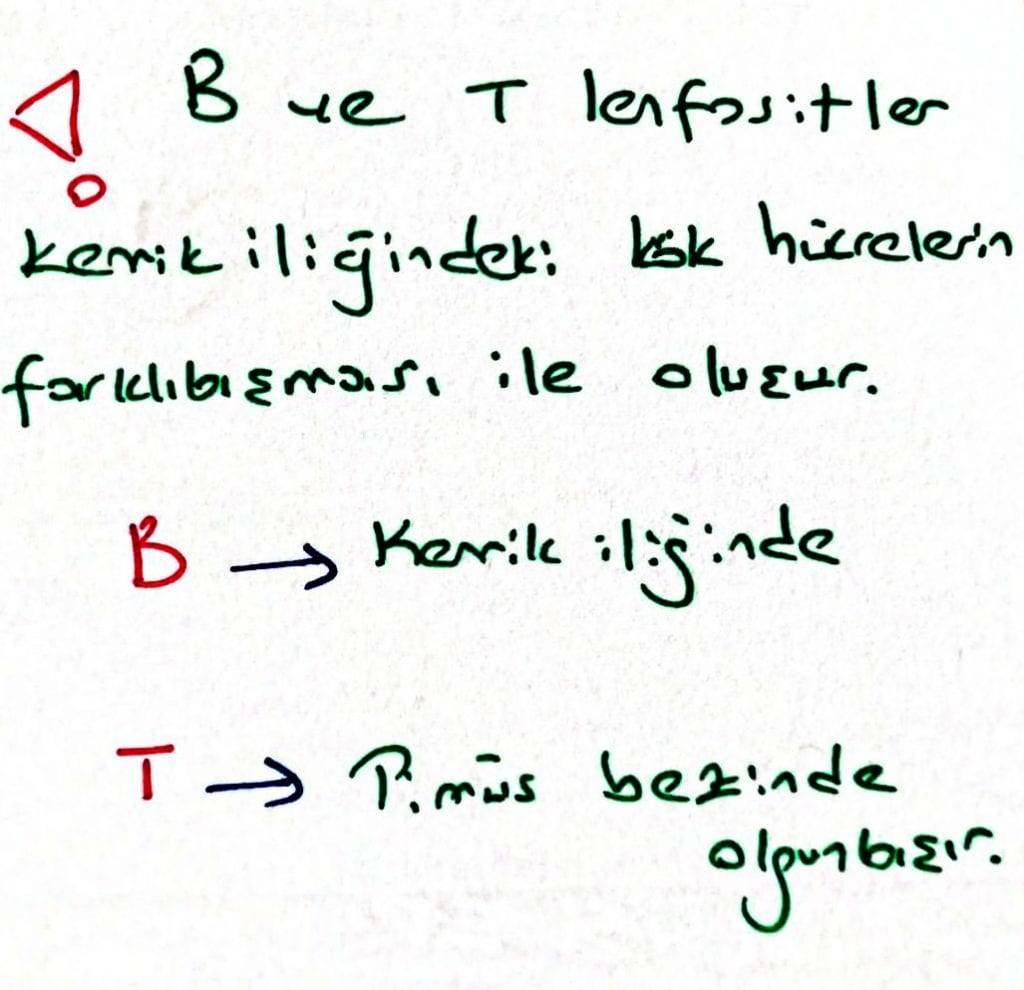 B ve T lenfositler
kemik iliğindeki kök hücrelerin
farklılaşması ile oluşur.
B → Kemik iliğinde
T → Timüs bezinde
olgunlaşır.